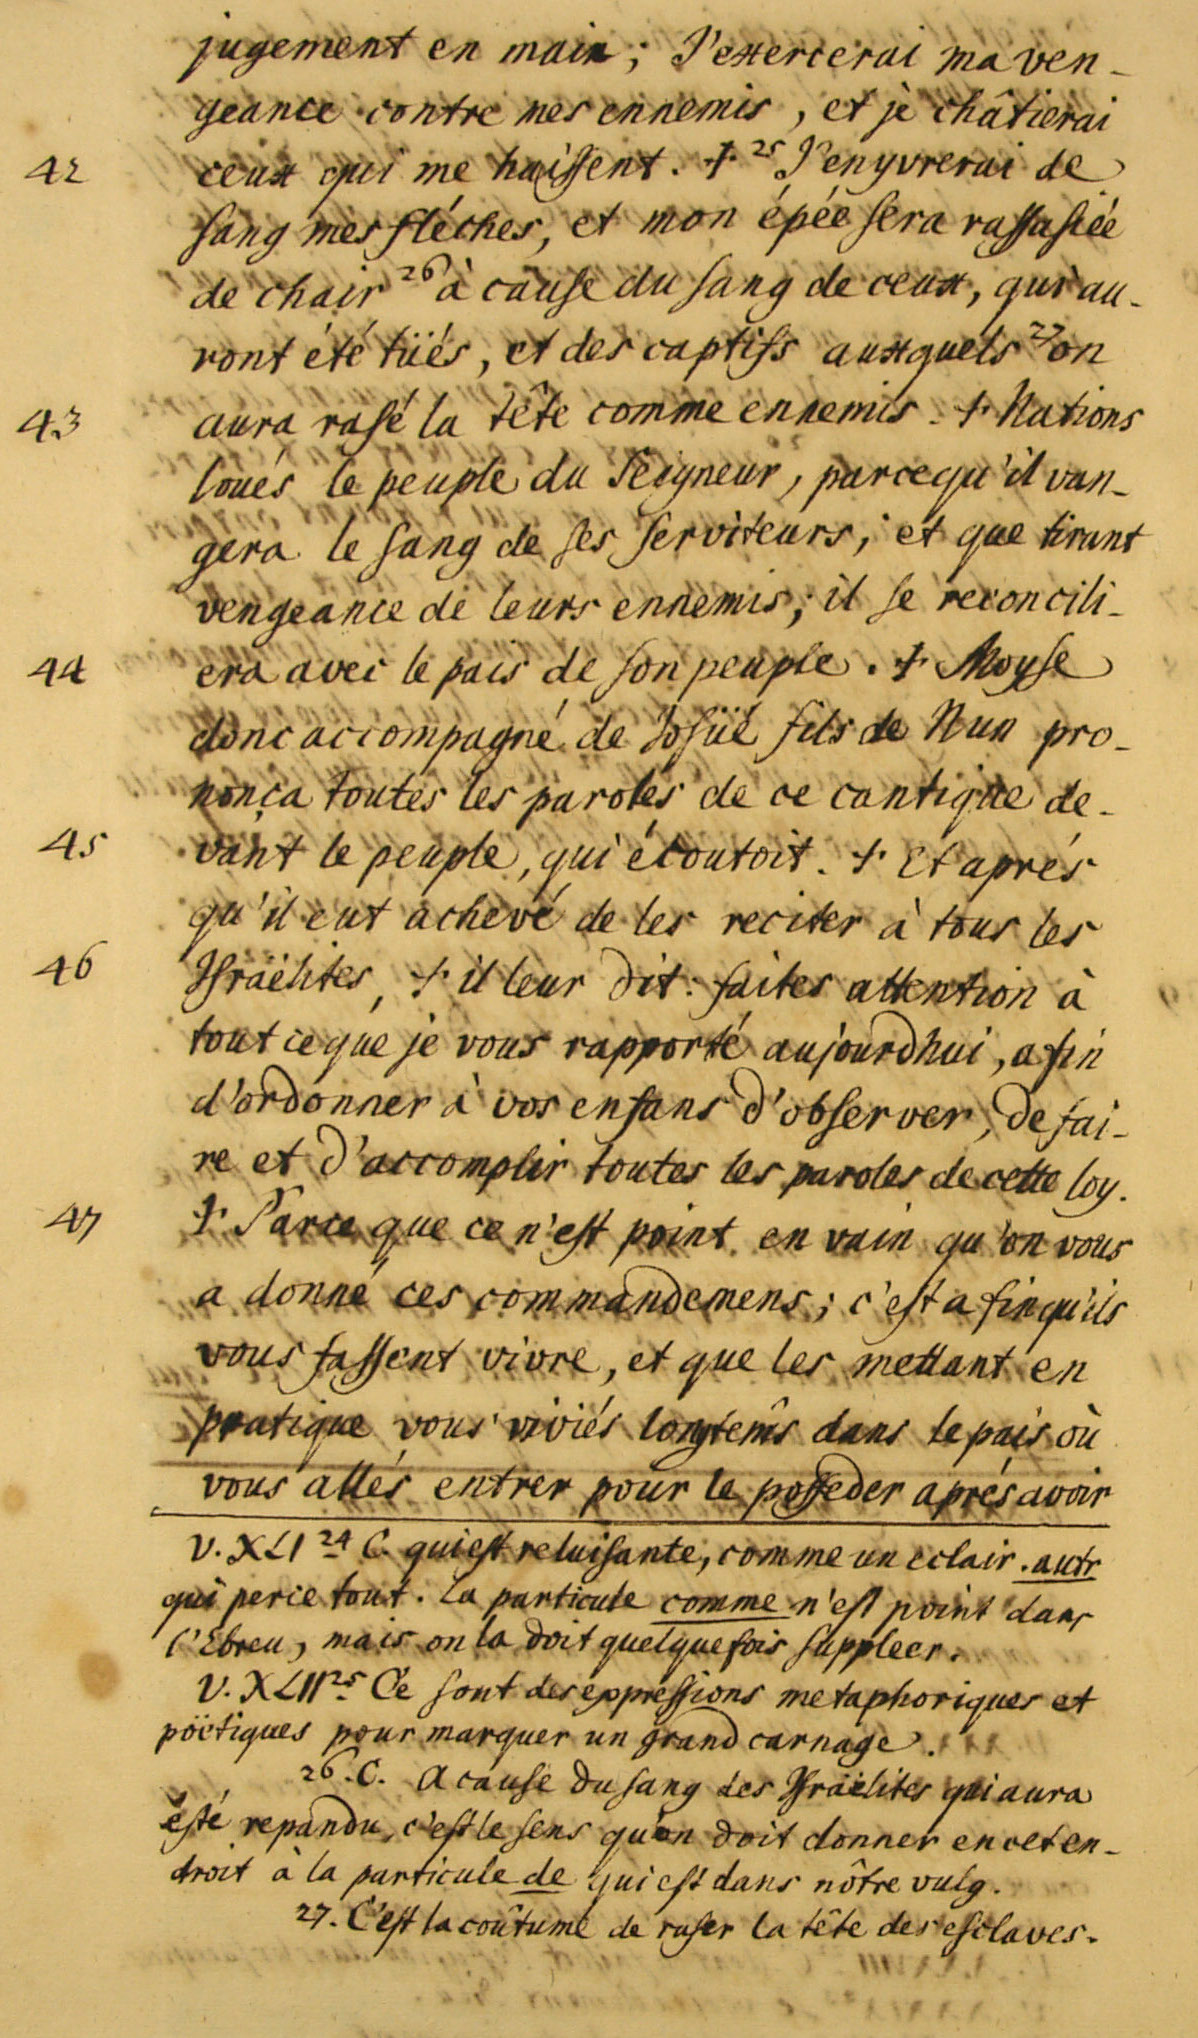 jugement en main ; J'exercerai ma ven-
geance contre mes ennemis , et je châtierai
42 ceux qui me haissent . + 25 J'enyvrerai de
sang mes fléches, et mon épée sera rassasiée
de chair 26 à cause du sang de ceux, qui au-
ront été tüés, et des captifs auxquels 27 on
43 aura rasé la tête comme ennemis . + Nations
loués le peuple du Seigneur, parcequ'il van-
gera le sang de ses serviteurs, et que tirant
vengeance de leurs ennemis, il se reconcili-
44 era avec le païs de son peuple . + Moyse
donc accompagné de Josüé fils de Nun pro-
nonça toutes les paroles de ce cantique de-
45 vant le peuple, qui écoutoit . + Et aprés
qu'il eut achevé de les reciter à tous les
46 Israëlites, + il leur dit : faites attention à
tout ce que je vous rapporté aujourdhui, afin
d'ordonner à vos enfans d'observer, de fai-
re et d'accomplir toutes les paroles de cette loy.
47 + Parce que ce n'est point en vain qu'on vous
a donné ces commandemens ; c'est afin qu'ils
vous fassent vivre, et que les mettant en
pratique vous viviés longtems dans le païs où
vous allés entrer pour le posseder aprés avoir
V. XLI 24 C. qui est reluisante, comme un eclair . autr
qui perce tout . la particule comme n'est point dans
l'Ebreu, mais on la doit quelquefois suppleer .
V. XLII 25 Ce sont des expressions metaphoriques et
poëtiques pour marquer un grand carnage .
26. C. A cause du sang des Israëlites qui aura
esté repandu, c'est le sens qu'on doit donner en cet en-
droit à la particule de qui est dans nôtre vulg.
27. C'est la coûtume de raser la tête des esclaves.